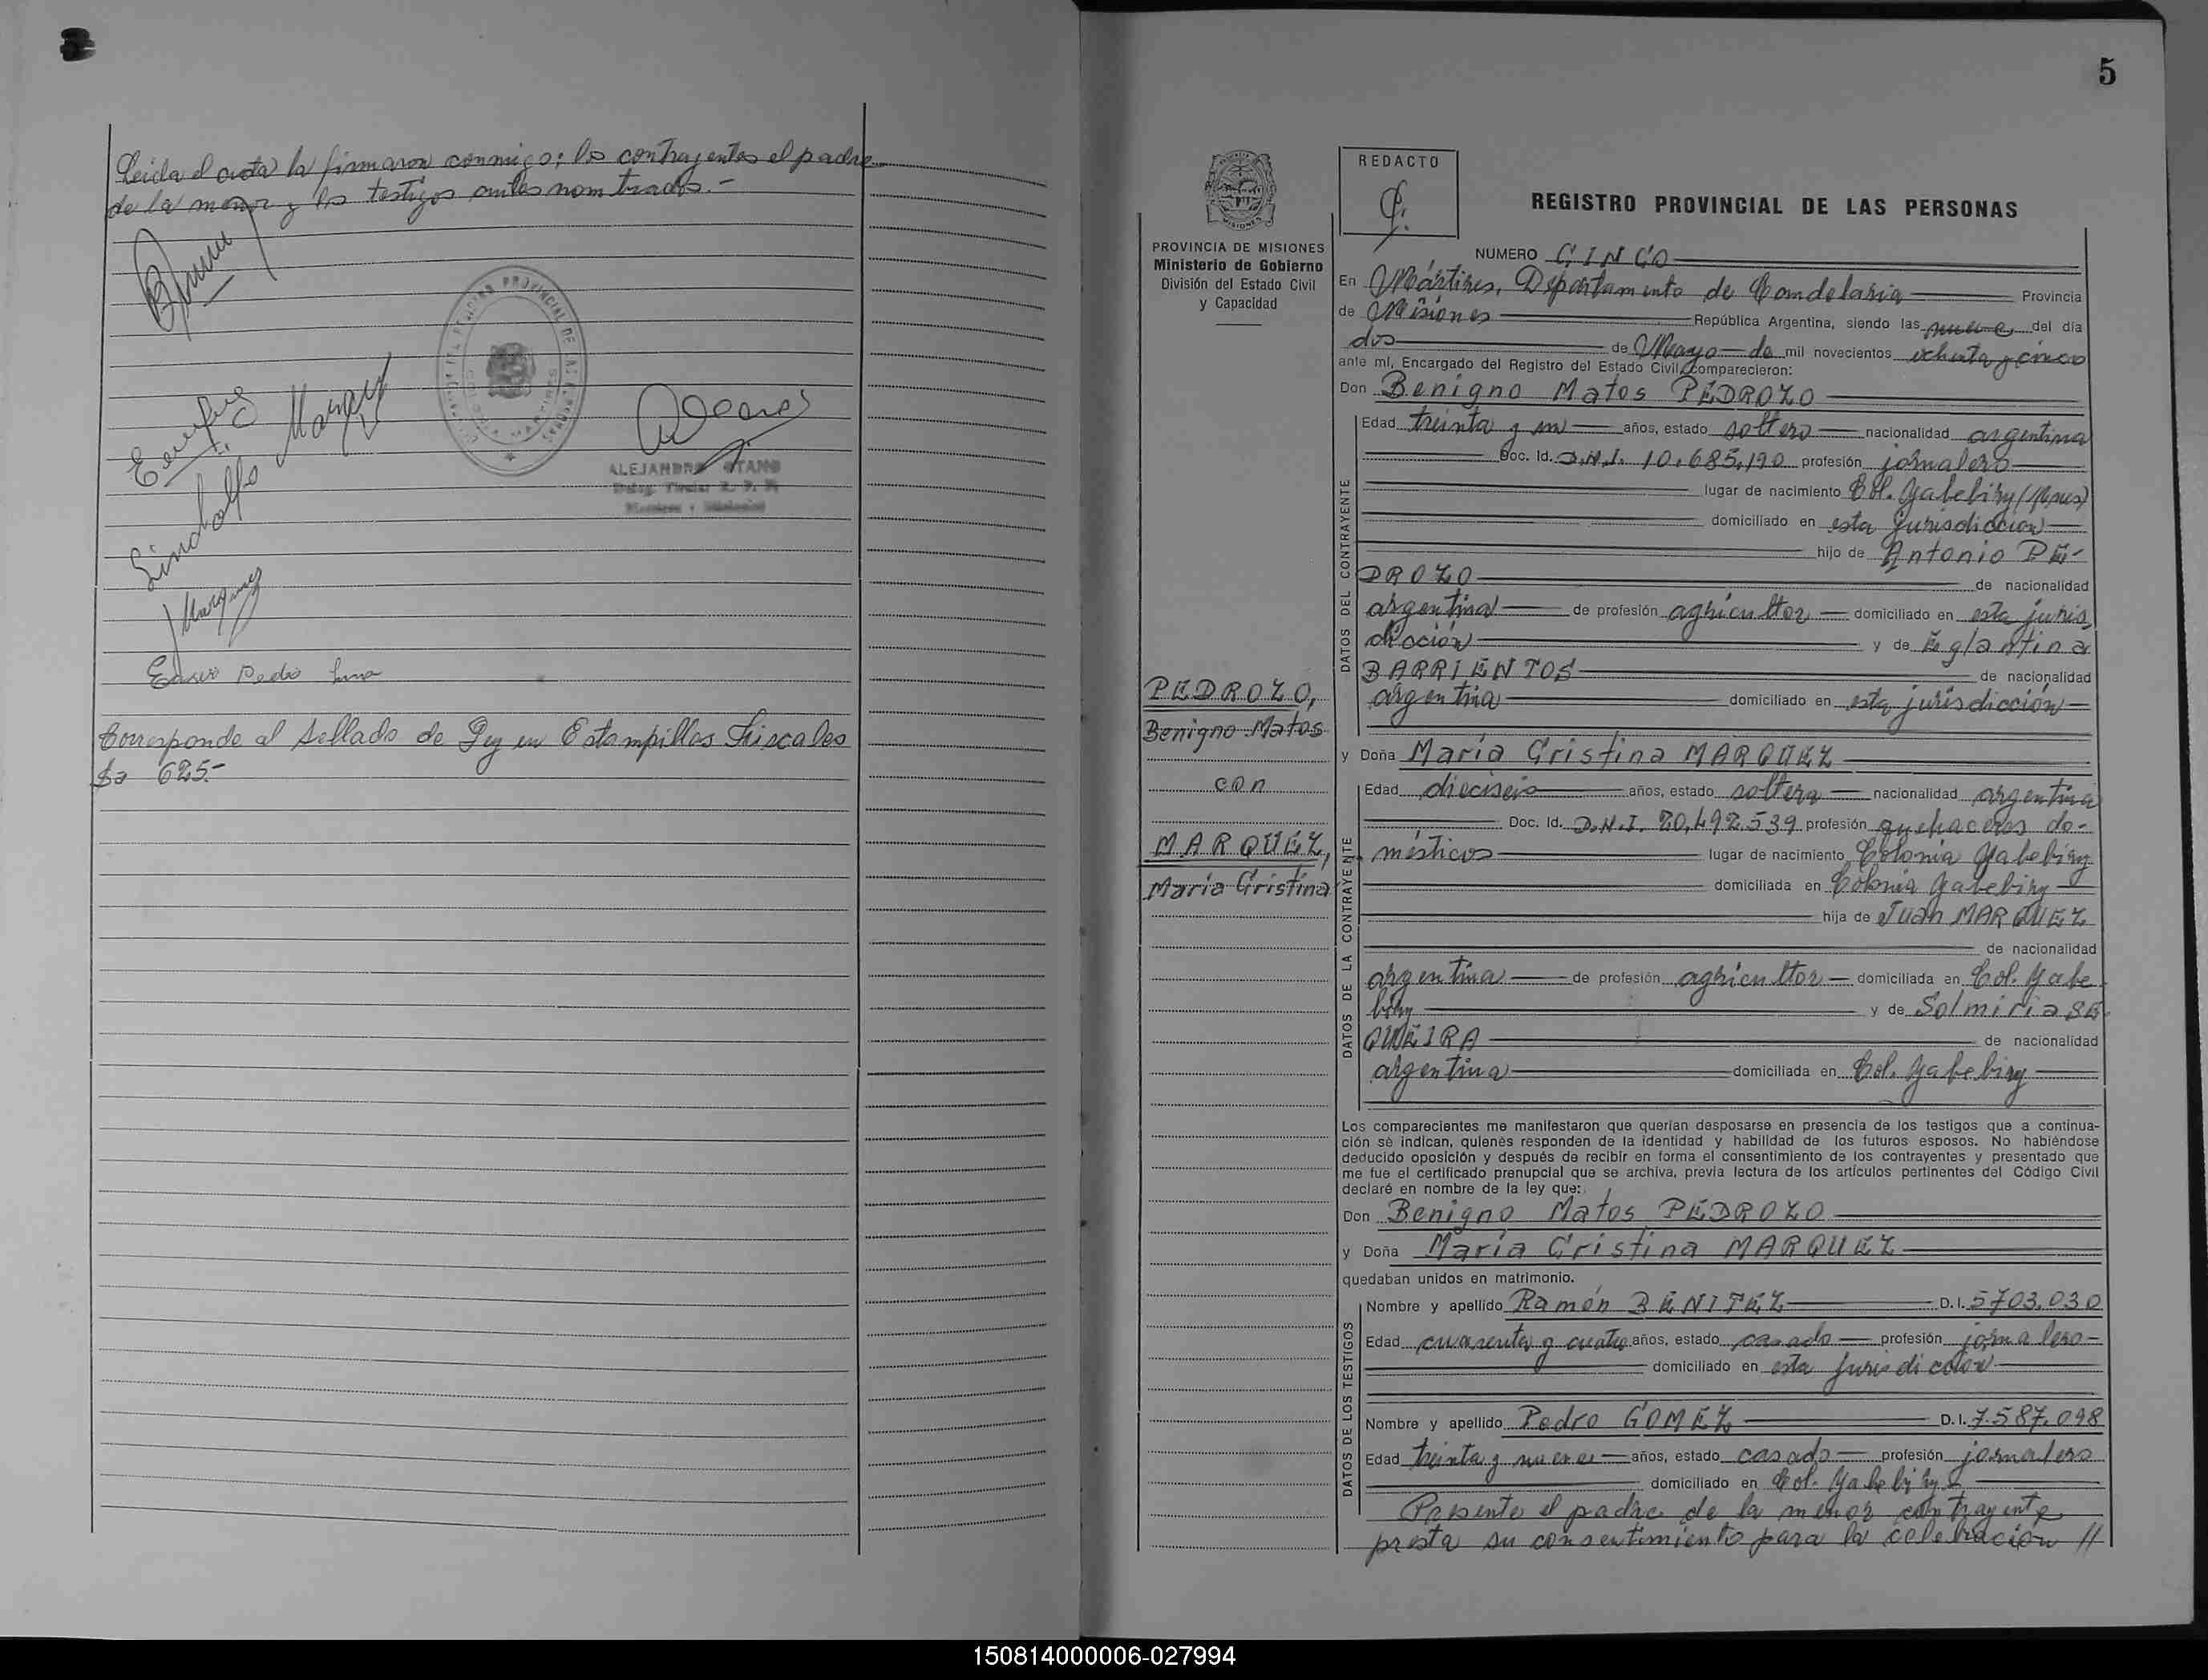 Leida el acta la firmaron conmigo; los contrayentes el padre
de la menor y los testigos antes nombrados.-
Lindolfo Marquez
ALEJANDRO OTANO
Corresponde al Sellado de Ley en Estampillas Fiscales
$a 625.-
5
PROVINCIA DE MISIONES
Ministerio de Gobierno
División del Estado Civil
y Capacidad
PEDROZO,
Benigno Matos
con
MARQUEZ,
María Cristina
REDACTO
REGISTRO PROVINCIAL DE LAS PERSONAS
NUMERO CINCO
En Mártires, Departamento de Candelaria Provincia
de Misiones República Argentina, siendo las nueve del día
dos de Mayo de mil novecientos ochenta y cinco
ante mí, Encargado del Registro del Estado Civil, comparecieron:
Don Benigno Matos PEDROZO
DATOS DEL CONTRAYENTE
Edad treinta y un años, estado soltero nacionalidad argentina
Doc. Id. D.N.I. 10.685.190 profesión jornalero
lugar de nacimiento Col. Yabebiry (Mnes)
domiciliado en esta jurisdicción
hijo de Antonio PE-
DROZO de nacionalidad
argentina de profesión agricultor domiciliado en esta juris
dicción y de Eglantina
BARRIENTOS de nacionalidad
argentina domiciliado en esta jurisdicción
y Doña María Cristina MARQUEZ
DATOS DE LA CONTRAYENTE
Edad dieciseis años, estado soltera nacionalidad argentina
Doc. Id. D.N.I. 20.492.539 profesión quehaceres do-
mésticos lugar de nacimiento Colonia Yabebiry
domiciliada en Colonia Yabebiry
hija de Juan MARQUEZ
de nacionalidad
argentina de profesión agricultor domiciliada en Col. Yabe
biry y de Solmiria SE
QUEIRA de nacionalidad
argentina domiciliada en Col. Yabebiry
Los comparecientes me manifestaron que querían desposarse en presencia de los testigos que a continua-
ción se indican, quienes responden de la identidad y habilidad de los futuros esposos. No habiéndose
deducido oposición y después de recibir en forma el consentimiento de los contrayentes y presentado que
me fue el certificado prenupcial que se archiva, previa lectura de los artículos pertinentes del Código Civil
declaré en nombre de la ley que:
Don Benigno Matos PEDROZO
y Doña María Cristina MARQUEZ
quedaban unidos en matrimonio.
DATOS DE LOS TESTIGOS
Nombre y apellido Ramón BENITEZ D.I. 5703.030
Edad cuarenta y cuatro años, estado casado profesión jornalero
domiciliado en esta jurisdiccion
Nombre y apellido Pedro GOMEZ D.I. 7.587.098
Edad treinta y nueve años, estado casado profesión jornalero
domiciliado en Col. Yabebiry
Presente el padre de la menor contrayente
presta su consentimiento para la celebración //
150814000006-027994